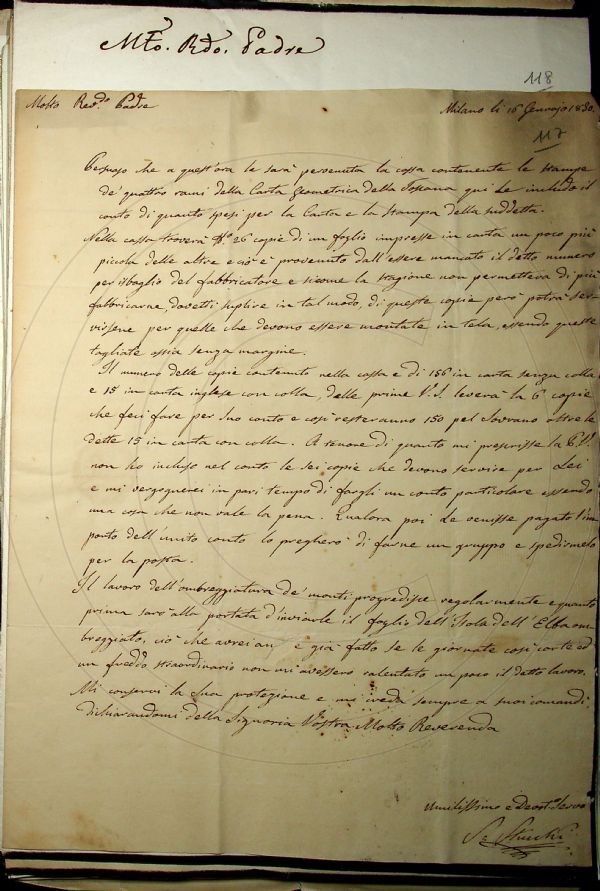 Mto. Rdo. Padre
118
Molto Revdo Padre
Milano li 16 Gennajo 1830.
117
Persuaso che a quest'ora le sarà pervenuta la cassa contenente le stampe
de' quattro rami della Carta geometrica della Toscana qui Le includo il
conto di quanto spesi per la Carta e la stampa della suddetta.
Nella cassa troverà No 26 copie di un foglio impresse in carta un poco più
piccola delle altre e ciò è provenuto dall'essere mancato il detto numero
per isbaglio del fabbricatore e siccome la stagione non permetteva di più
fabbricarne, dovetti suplire in tal modo, di queste copie però potrà ser-
virsene per quelle che devono essere montate in tela, essendo queste
tagliate ossia senza margine.
Il numero delle copie contenute nella cassa è di 156 in carta senza colla
e 15 in carta inglese con colla, delle prime V.S. leverà la 6 copie
che feci fare per suo conto e così resteranno 150 pel Sovrano oltre le
dette 15 in carta con colla. A tenore di quanto mi prescrisse la
non ho incluso nel conto le sei copie che devono servire per Lei
e mi vergognerei in pari tempo di fargli un conto particolare essendo
una cosa che non vale la pena. Qualora poi Le venisse pagato l'im-
porto dell'unito conto lo pregherò di farne un gruppo e spedirmelo
per la posta.
Il lavoro dell'ombreggiatura de' monti progredisce regolarmente e quanto
prima sarò alla portata d'inviarle il foglio dell'Isola dell'Elba om-
breggiato, ciò che avrei già fatto se le giornate così corte ed
un freddo straordinario non mi avessero ralentato un poco il detto lavoro.
Mi conservi la Sua protezione e mi creda sempre a suoi comandi
dichiarandomi della Signoria Vostra Molto Reverenda
Umilissimo e Devot.o Servo